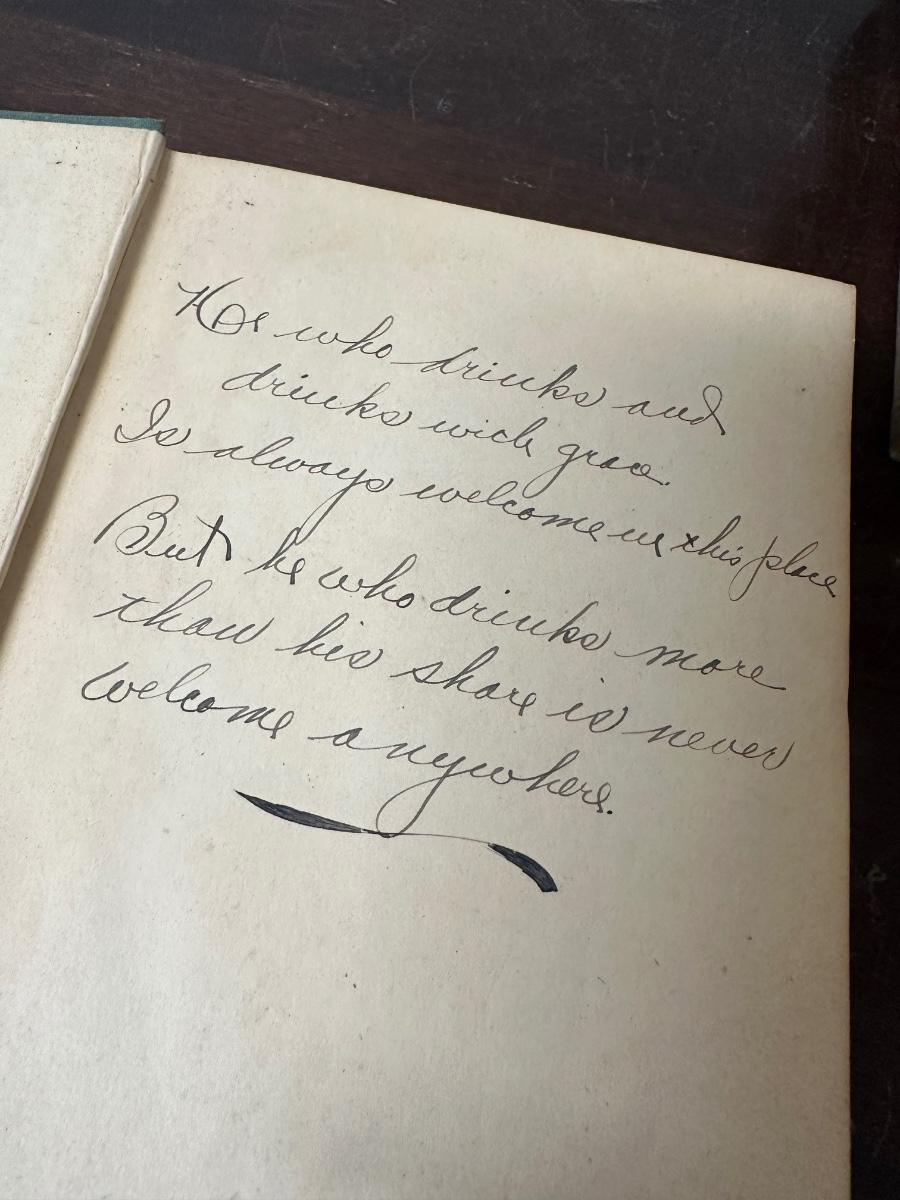 He who drinks and
drinks with grace
Is always welcome in this place
But he who drinks more
than his share is never
welcome anywhere.